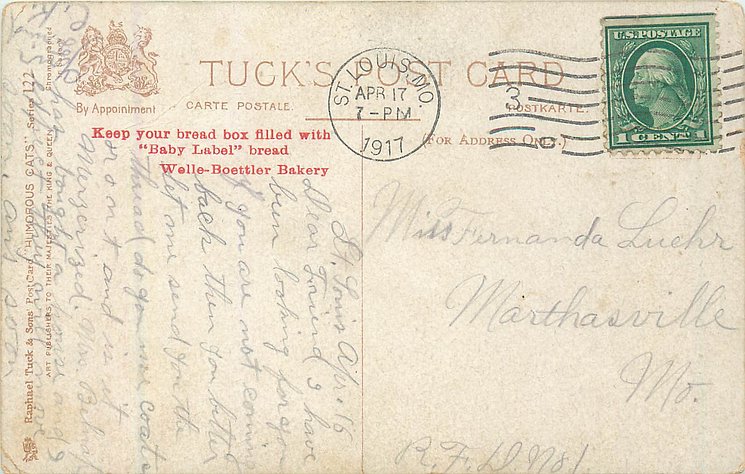 TUCK'S POST CARD
By Appointment
CARTE POSTALE.
POSTKARTE.
(FOR ADDRESS ONLY.)
Keep your bread box filled with
"Baby Label" bread
Welle-Boettler Bakery
ST. LOUIS, MO.
APR 17
7-PM
1917
3
U.S. POSTAGE
1 CENT 1
Miss Fernanda Luehr
Marthasville
Mo.
R. F. D No 1
St. Louis Apr. 16
Dear Friend I have
been looking for you
if you are not coming
back then you better
let me send you the
thread do you use coats
or o n t and is it
Mercerized. Mrs.
has bought a house and
Raphael Tuck & Sons' Post Card "HUMOROUS CATS" Series 122
ART PUBLISHERS TO THEIR MAJESTIES THE KING & QUEEN
Chromographed